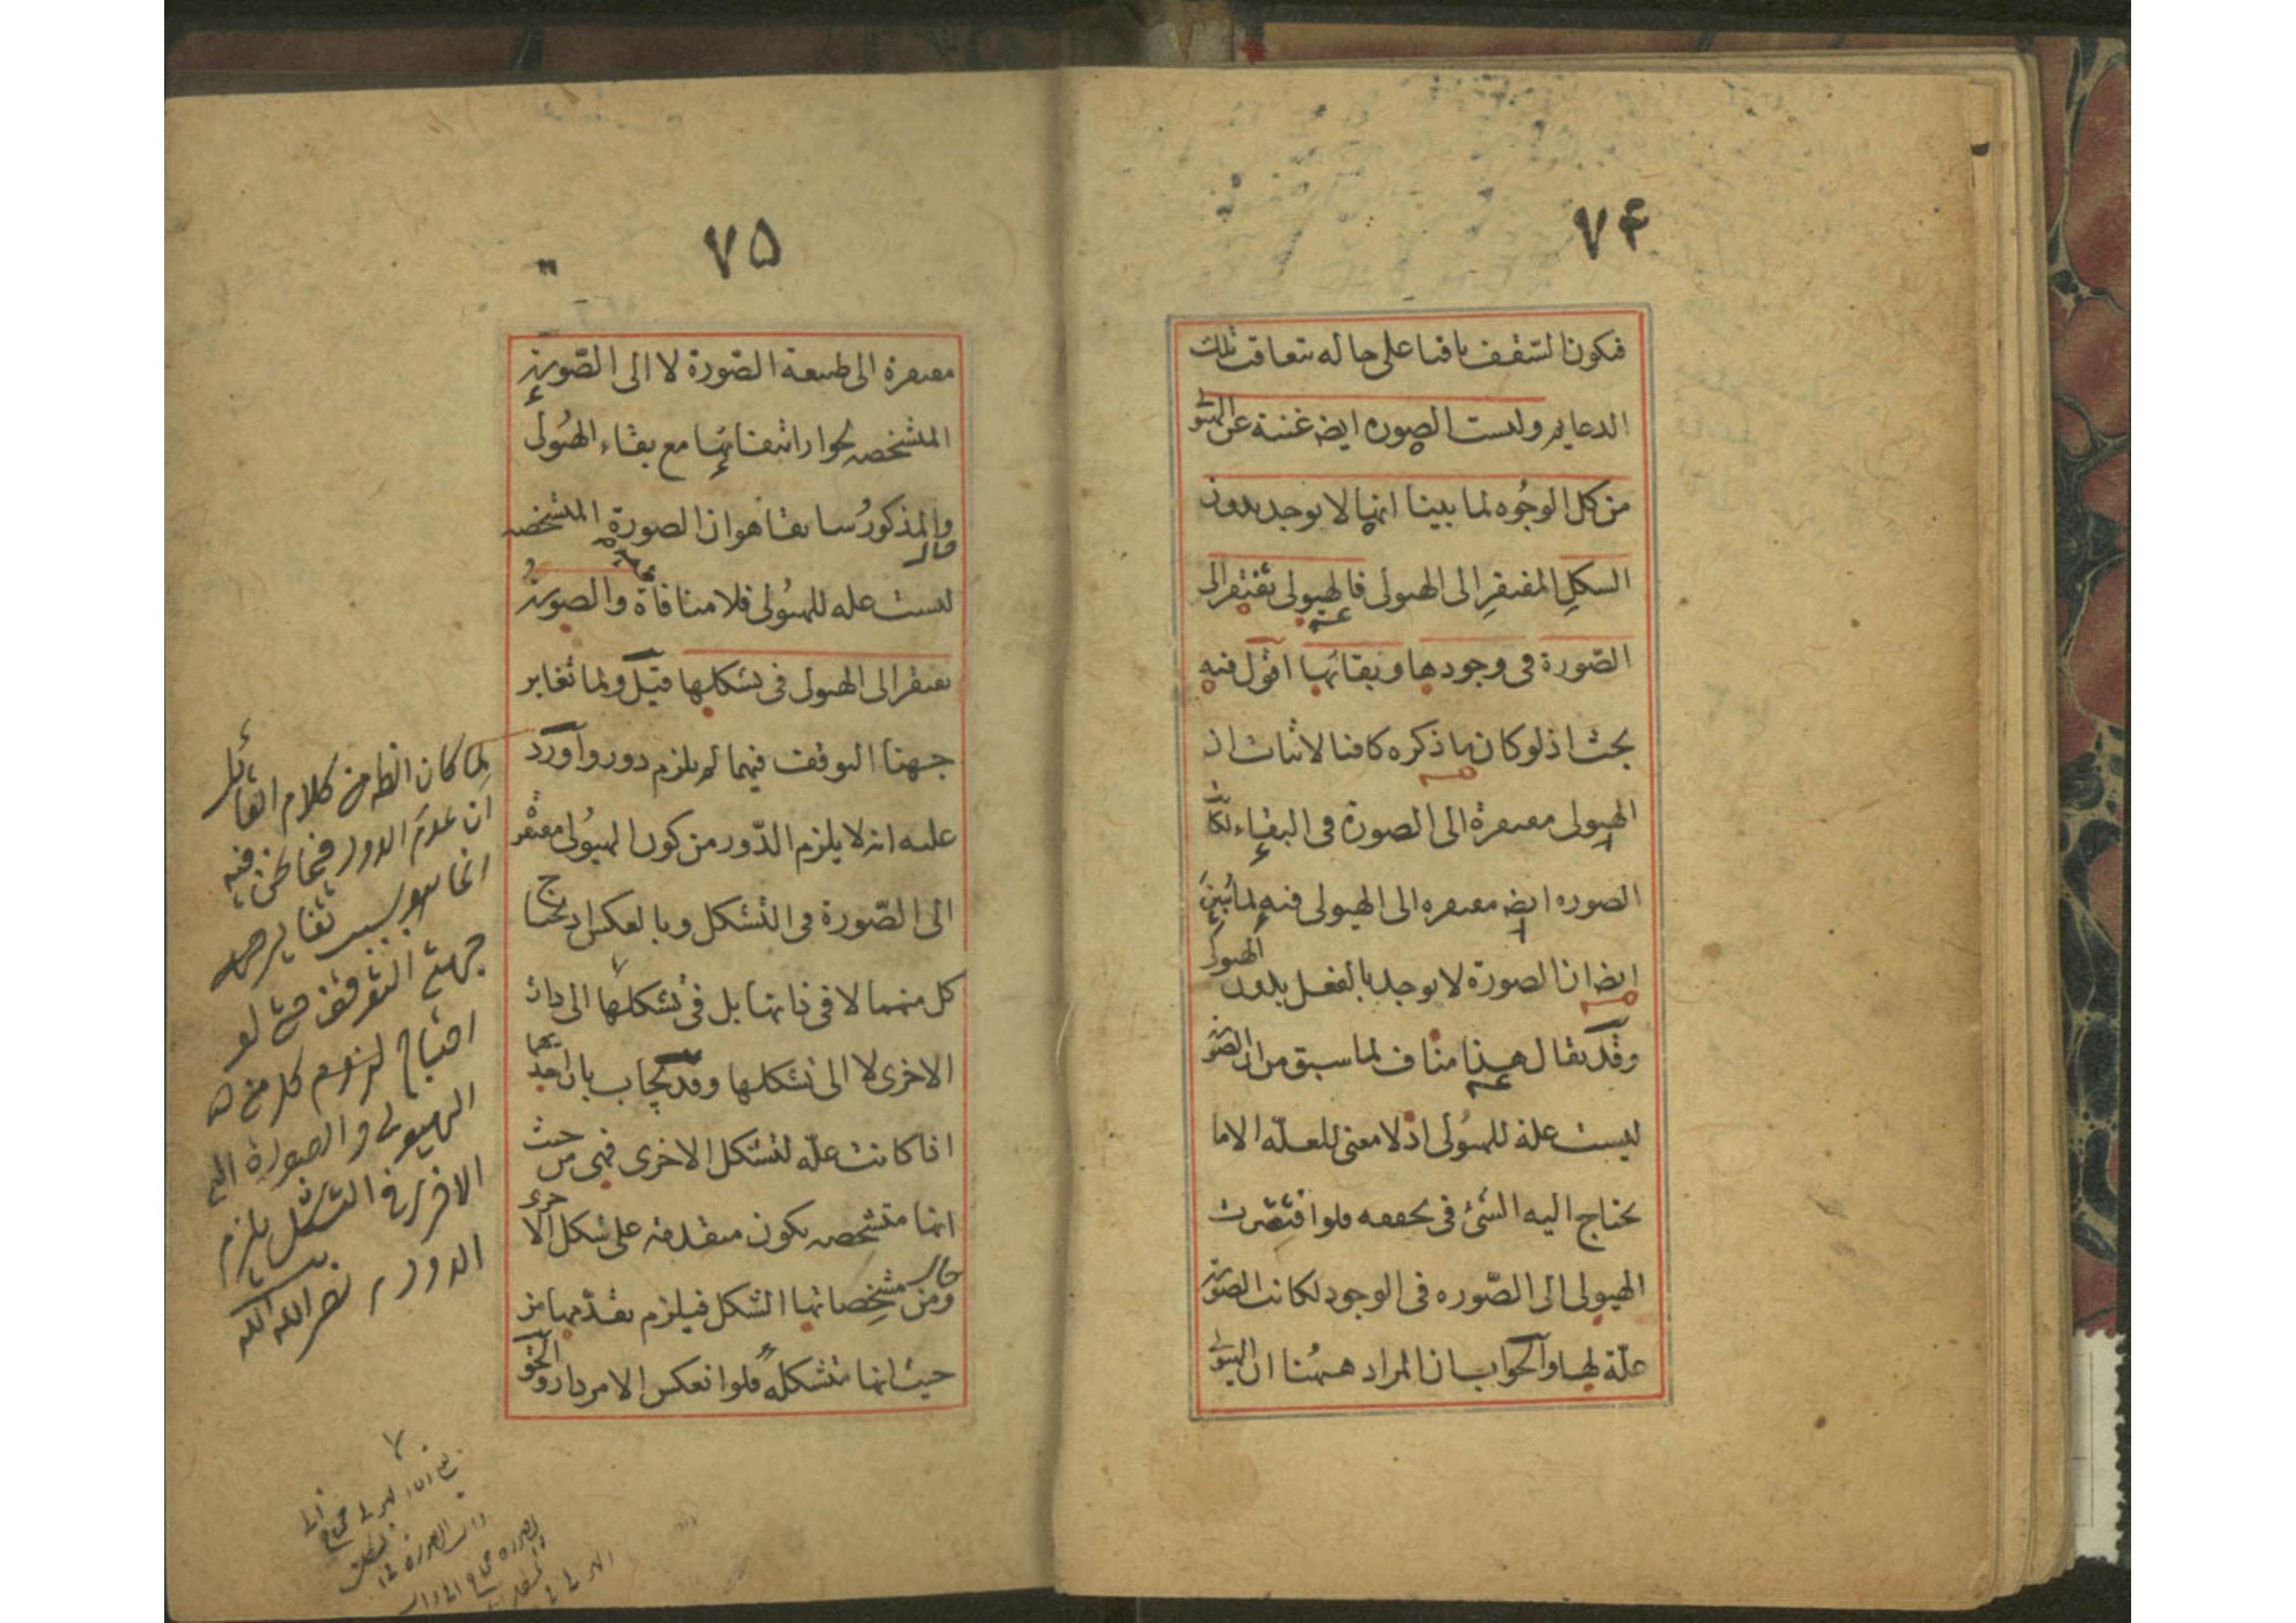 ٧٤
فيكون السقف باقيا على حاله بتعاقب تلك
الدعايم وليست الصورة ايضه غنية عن الهيولى
من كل الوجوه لما بينا انها لا يوجد بدون
الشكل المفتقر الى الهيولى فالهيولى تفتقر الى
الصورة في وجودها وبقائها اقول فيه
بحث اذ لو كان ما ذكره كافيا لاثبات ان
الهيولى مفتقرة الى الصورة في البقاء لكانت
الصوره ايضه مفتقره الى الهيولى فيه لما بين
ايضه ان الصورة لا يوجد بالفعل بدون الهيولى
وقد يقال هذا مناف لما سبق من ان الصورة
ليست علة للهيولى اذ لا معنى للعلة الا ما
يحتاج اليه الشئ في تحققه فلو افتقرت
الهيولى الى الصوره في الوجود لكانت الصورة
علة لها والجواب ان المراد ههنا ان الهيولى
٧٥
مفتقرة الى طبيعة الصورة لا الى الصورة
المشخصه لجواز انتفائها مع بقاء الهيولى
والمذكور سابقا هو ان الصورة المشخصه
ليست علة للهيولى فلا منافاة والصورة
تفتقر الى الهيولى في تشكلها قيل ولما تغاير
جهتا التوقف فيهما لم يلزم دور واورد
عليه انه لا يلزم الدور من كون الهيولى مفتقرة
الى الصورة في التشكل وبالعكس اذ يحتاج
كل منهما لا في ذاتها بل في تشكلها الى ذات
الاخرى لا الى تشكلها وقد يجاب بان احديهما
اذا كانت علة لتشكل الاخرى فهى من حيث
انها متشخصه يكون متقدمة على شكل الاخرى
ومن مشخصاتها الشكل فيلزم تقدمها من
حيث انها متشكلة فلو انعكس الامر دار والحق
لما كان الظ من كلام القائل
ان عدم الدور فيما نحن فيه
انما هو بسبب تغاير
جهتى التوقف حتى لو
احتياج كل من
الهيولى والصورة الى
الاخرى في التشكل يلزم
الدور نصر الله